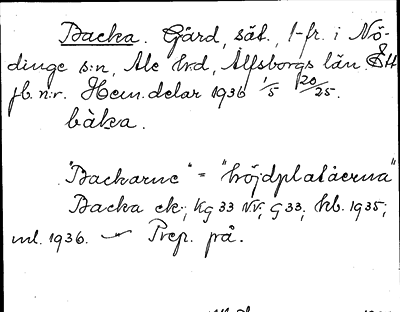 Backa. Gård, sät., 1-fr. i Nö-
dinge s:n, Ale hrd, Älfsborgs län.
jb. n:r. Hem. delar 1936 1/5 20/25.
bàka.
"Backarne" = "höjdplatåerna"
Backa ek.; Kg 33 N.V.; G 33; hb. 1935;
ml. 1936. Prep. på.